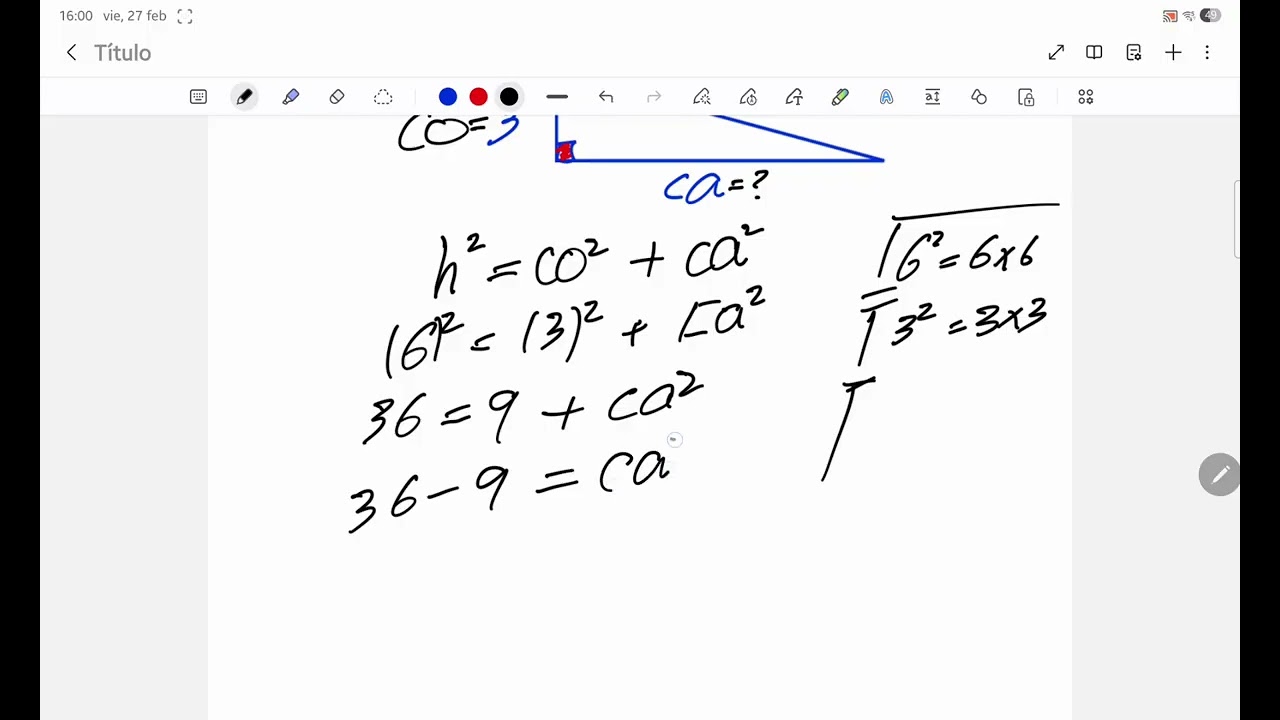 16:00 vie, 27 feb 49
Título
CO=3
ca=?
h²=CO² + ca²
(6)²= (3)² + ca²
36=9 + ca²
36-9 = ca
6²=6x6
3²=3x3